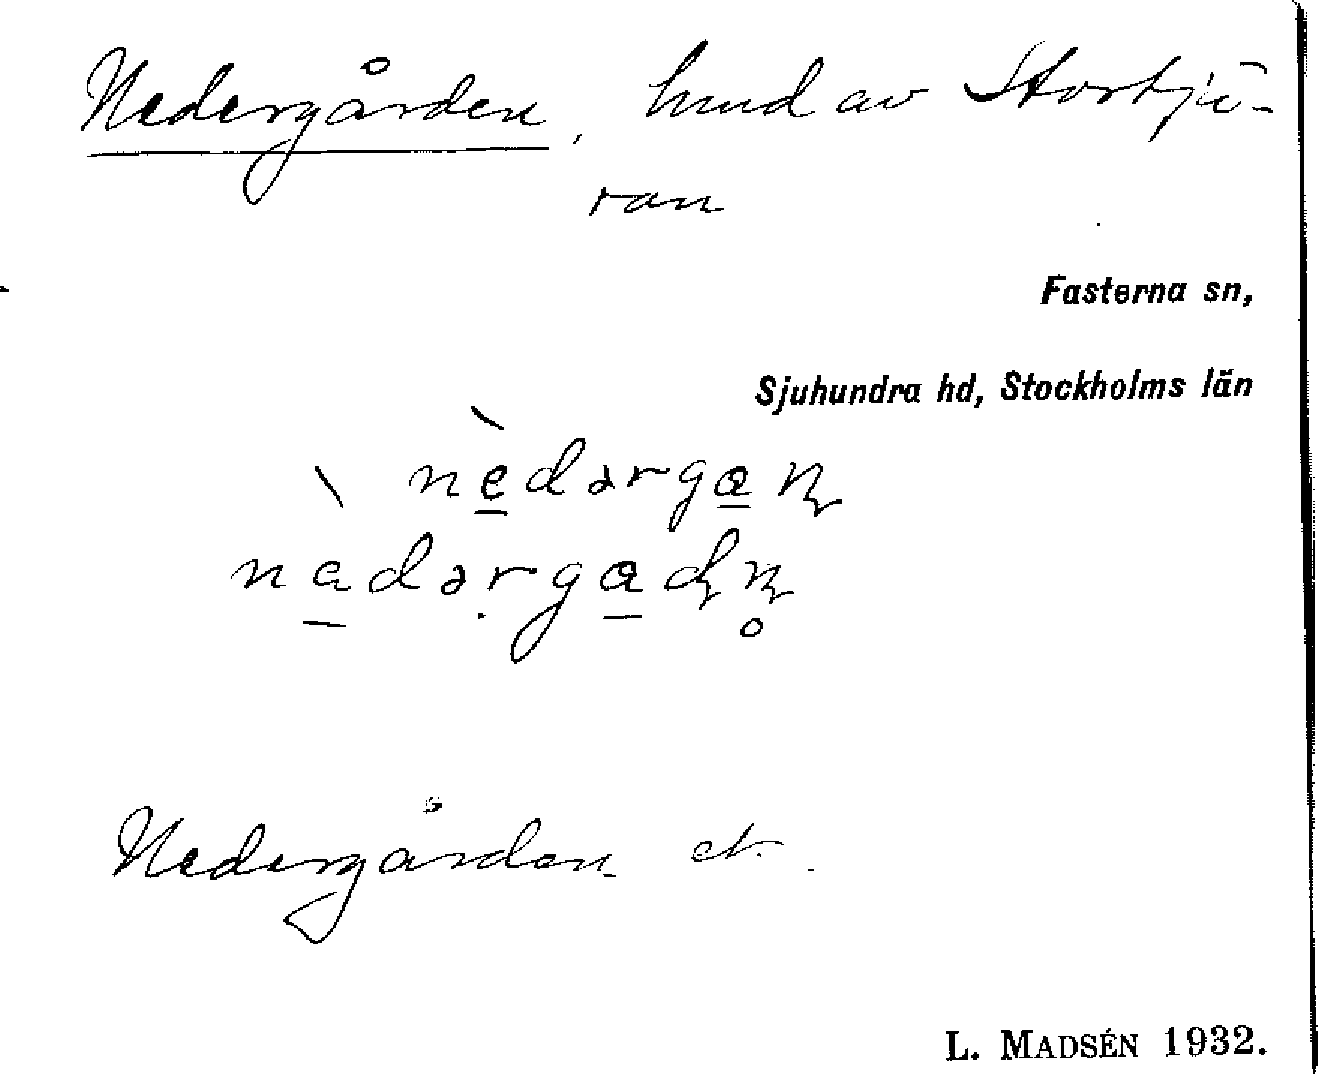 Nedergården, hmd av Stortjü-
ran
Fasterna sn,
Sjuhundra hd, Stockholms län
nèdərgaɳ
nadərgaɖɳ̥
Nedergården et.
L. MADSÉN 1932.